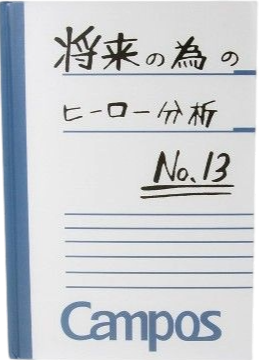 将来の為の
ヒーロー分析
No.13
Campos